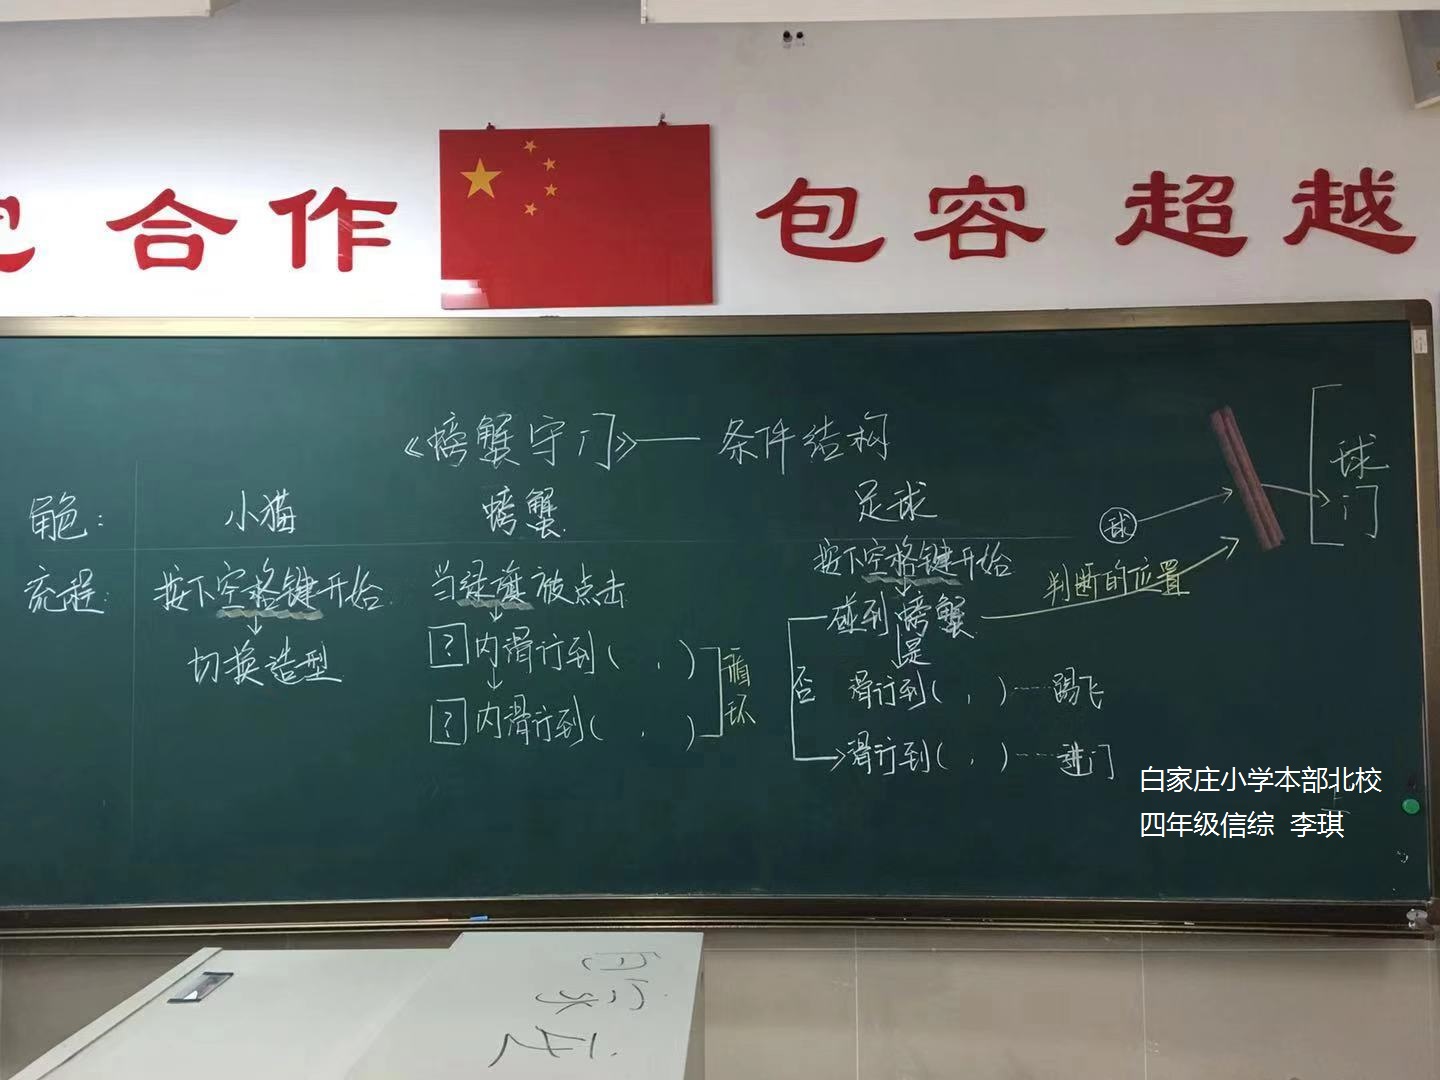 合作 包容 超越
《螃蟹守门》——条件结构
角色： 小猫 螃蟹 足球
流程： 按下空格键开始 当绿旗被点击 按下空格键开始
切换造型
?内滑行到( , )
?内滑行到( , )
循环
碰到螃蟹
是
否
滑行到( , )……踢飞
滑行到( , )……进门
球
判断的位置
球门
白家庄小学本部北校
四年级信综 李琪